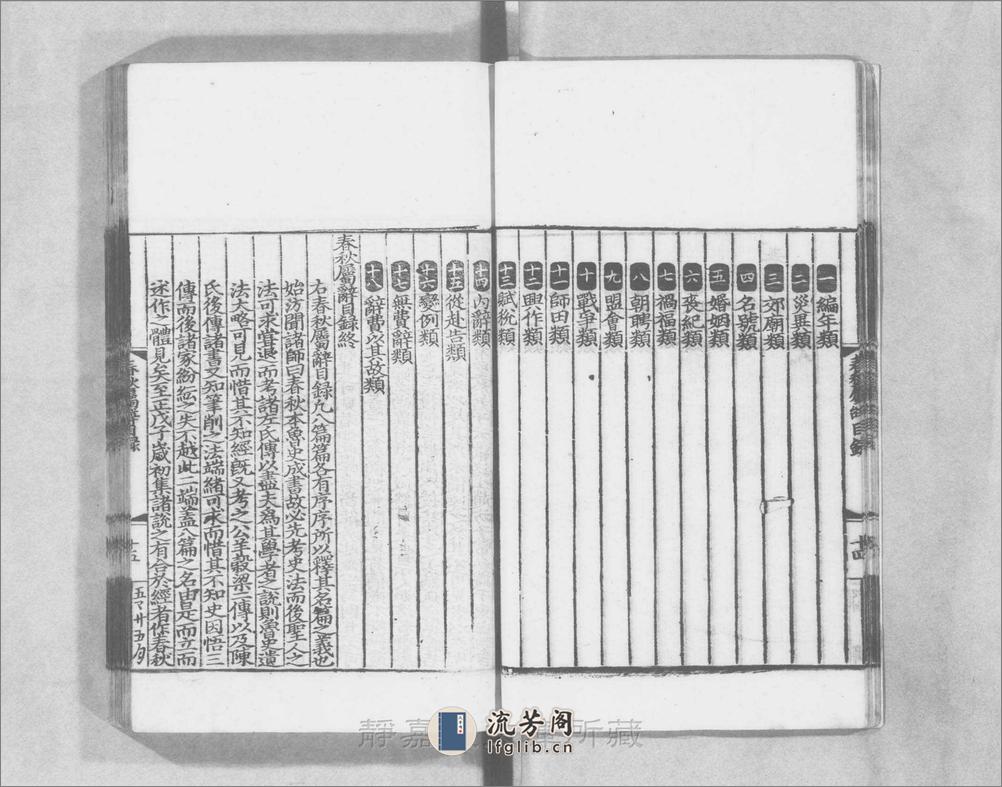 一 編年類
二 災異類
三 郊廟類
四 名號類
五 婚姻類
六 喪紀類
七 禍福類
八 朝聘類
九 盟會類
十 戰爭類
十一 師田類
十二 興作類
十三 賦稅類
十四 內辭類
十五 從赴告類
十六 變例類
十七 無費辭類
十八 辭費以其故類
春秋屬辭目録終
右春秋屬辭目録凡八篇篇各有序序所以釋其名篇之義也
始汸聞諸師曰春秋本魯史成書故必先考史法而後聖人之
法可求甞退而考諸左氏傳以盡夫為其學者之說則魯史遺
法大略可見而惜其不知經旣又考之公羊穀梁二傳以及陳
氏後傳諸書又知筆削之法端緒可求而惜其不知史因悟三
傳而後諸家紛紜之失不越此二端蓋八篇之名由是而立而
述作之體見矣至正戊子歲初集諸說之有合於經者作春秋
春秋屬辭目録
十五
十四
靜嘉 所藏
流芳阁
lfglib.cn